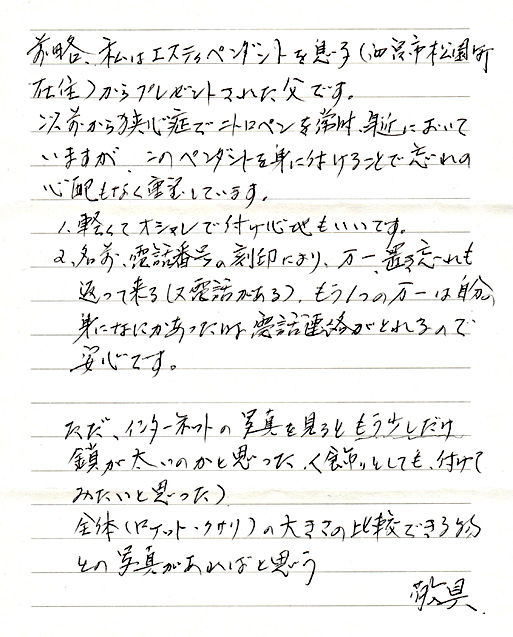 前略、私はエスティペンダントを息子(西宮市松園町
在住)からプレゼントされた父です。
以前から狭心症でニトロペンを常時、身近において
いますが、このペンダントを身に付けることで忘れの
心配もなく重宝しています。
1、軽くてオシャレで付け心地もいいです。
2、名前、電話番号の刻印により、万一、置き忘れも
返って来る(又電話がある)、もう1つの万一は自分
身になにかあったは電話連絡がとれるので
安心です。
ただ、インターネットの写真を見るともう少しだけ
鎖が太いのかと思った、(飾りとしても、付けて
みたいと思った)
全体(ロケット・クサリ)の大きさの比較できる物
との写真があればと思う
敬具.